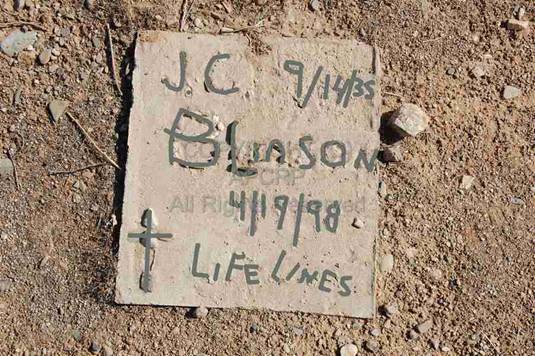 JC 9/14/35
BLINSON
4/19/98
All Rights Reserved
LIFE LINES